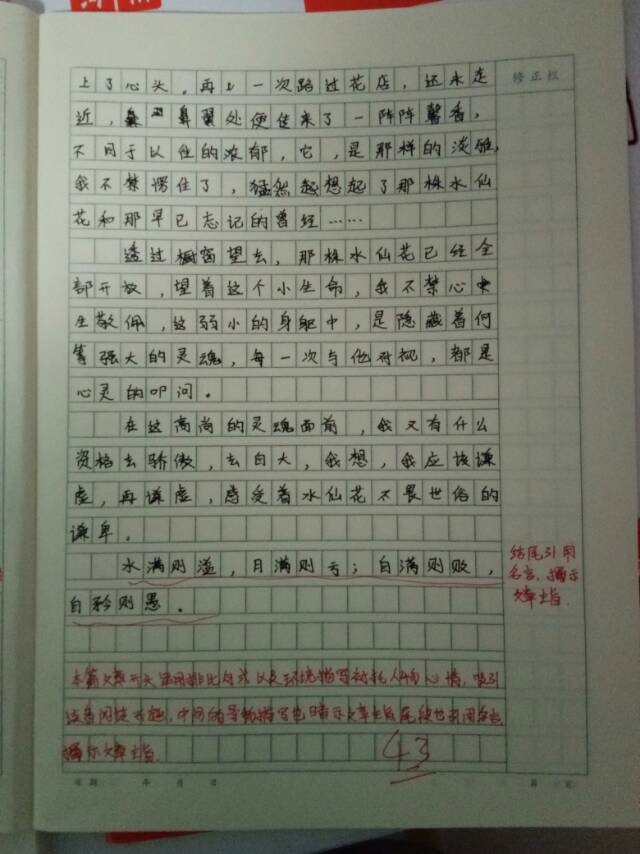 修正栏
上了心头。再一次路过花店，还未走
近，鼻翼处便传来了一阵阵馨香，
不同于以往的浓郁，它，是那样的淡雅，
我不禁愣住了，猛然起想起了那株水仙
花和那早已忘记的曾经……
透过橱窗望去，那株水仙花已经全
部开放，望着这个小生命，我不禁心中
生敬佩，这弱小的身躯中，是隐藏着何
等强大的灵魂，每一次与他对视，都是
心灵的叩问。
在这高尚的灵魂面前，我又有什么
资格去骄傲，去自大，我想，我应该谦
虚，再谦虚，感受着水仙花不畏世俗的
谦卑。
水满则溢，月满则亏；自满则败，
自矜则愚。
结尾引用
名言，揭示
文章主旨.
本篇文章开头运用排比句式以及环境描写衬托人物心情，吸引
读者阅读兴趣，中间的景物描写也暗示文章主旨，尾段也引用名言
揭示文章主旨.
43
日期 年 月 日
第 页